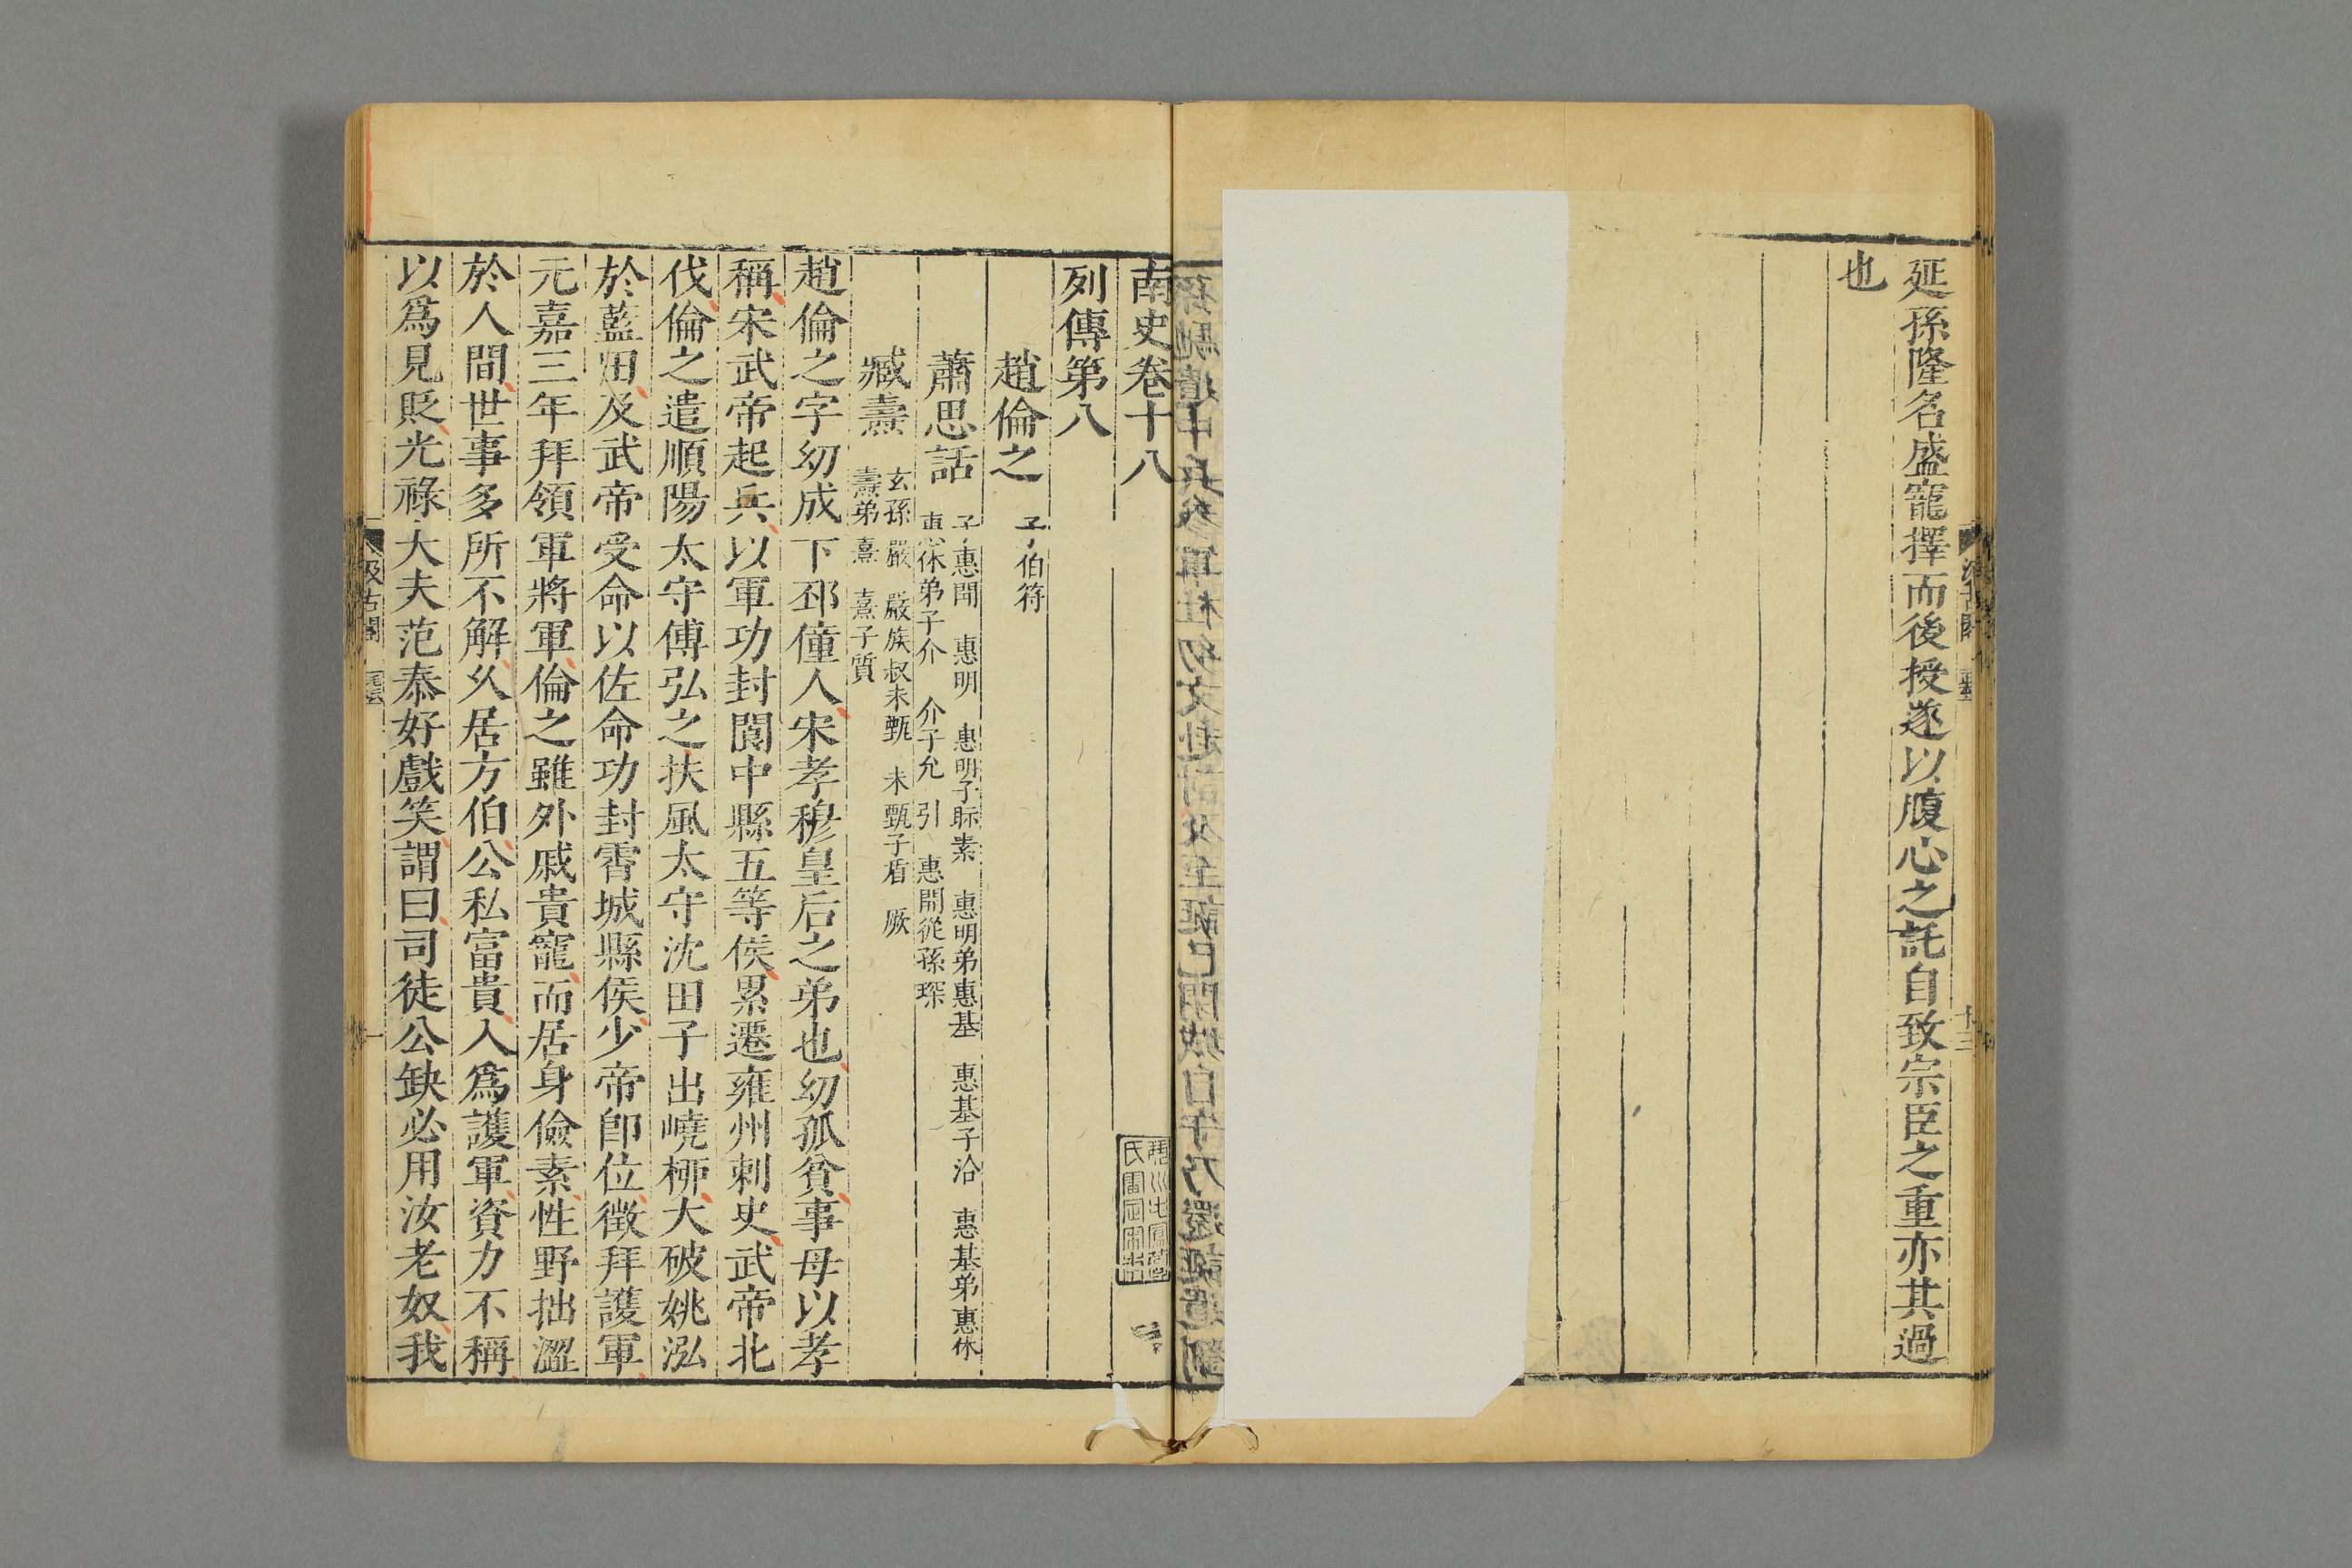 延孫隆名盛寵擇而後授遂以腹心之託自致宗臣之重亦其過
也
十三
南史卷十八
列傳第八
趙倫之 子伯符
蕭思話 子惠開 惠明 惠明子眎素 惠明弟惠基 惠基子洽 惠基弟惠休
惠休弟子介 介子允 引 惠開從孫琛
臧燾 玄孫嚴 嚴族叔未甄 未甄子盾 厥
燾弟熹 熹子質
趙倫之字幼成下邳僮人宋孝穆皇后之弟也幼孤貧事母以孝
稱宋武帝起兵以軍功封閬中縣五等侯累遷雍州刺史武帝北
伐倫之遣順陽太守傅弘之扶風太守沈田子出嶢柳大破姚泓
於藍田及武帝受命以佐命功封霄城縣侯少帝即位徵拜護軍
元嘉三年拜領軍將軍倫之雖外戚貴寵而居身儉素性野拙澀
於人間世事多所不解久居方伯公私富貴入爲護軍資力不稱
以爲見貶光祿大夫范泰好戲笑謂曰司徒公缺必用汝老奴我
汲古閣
一